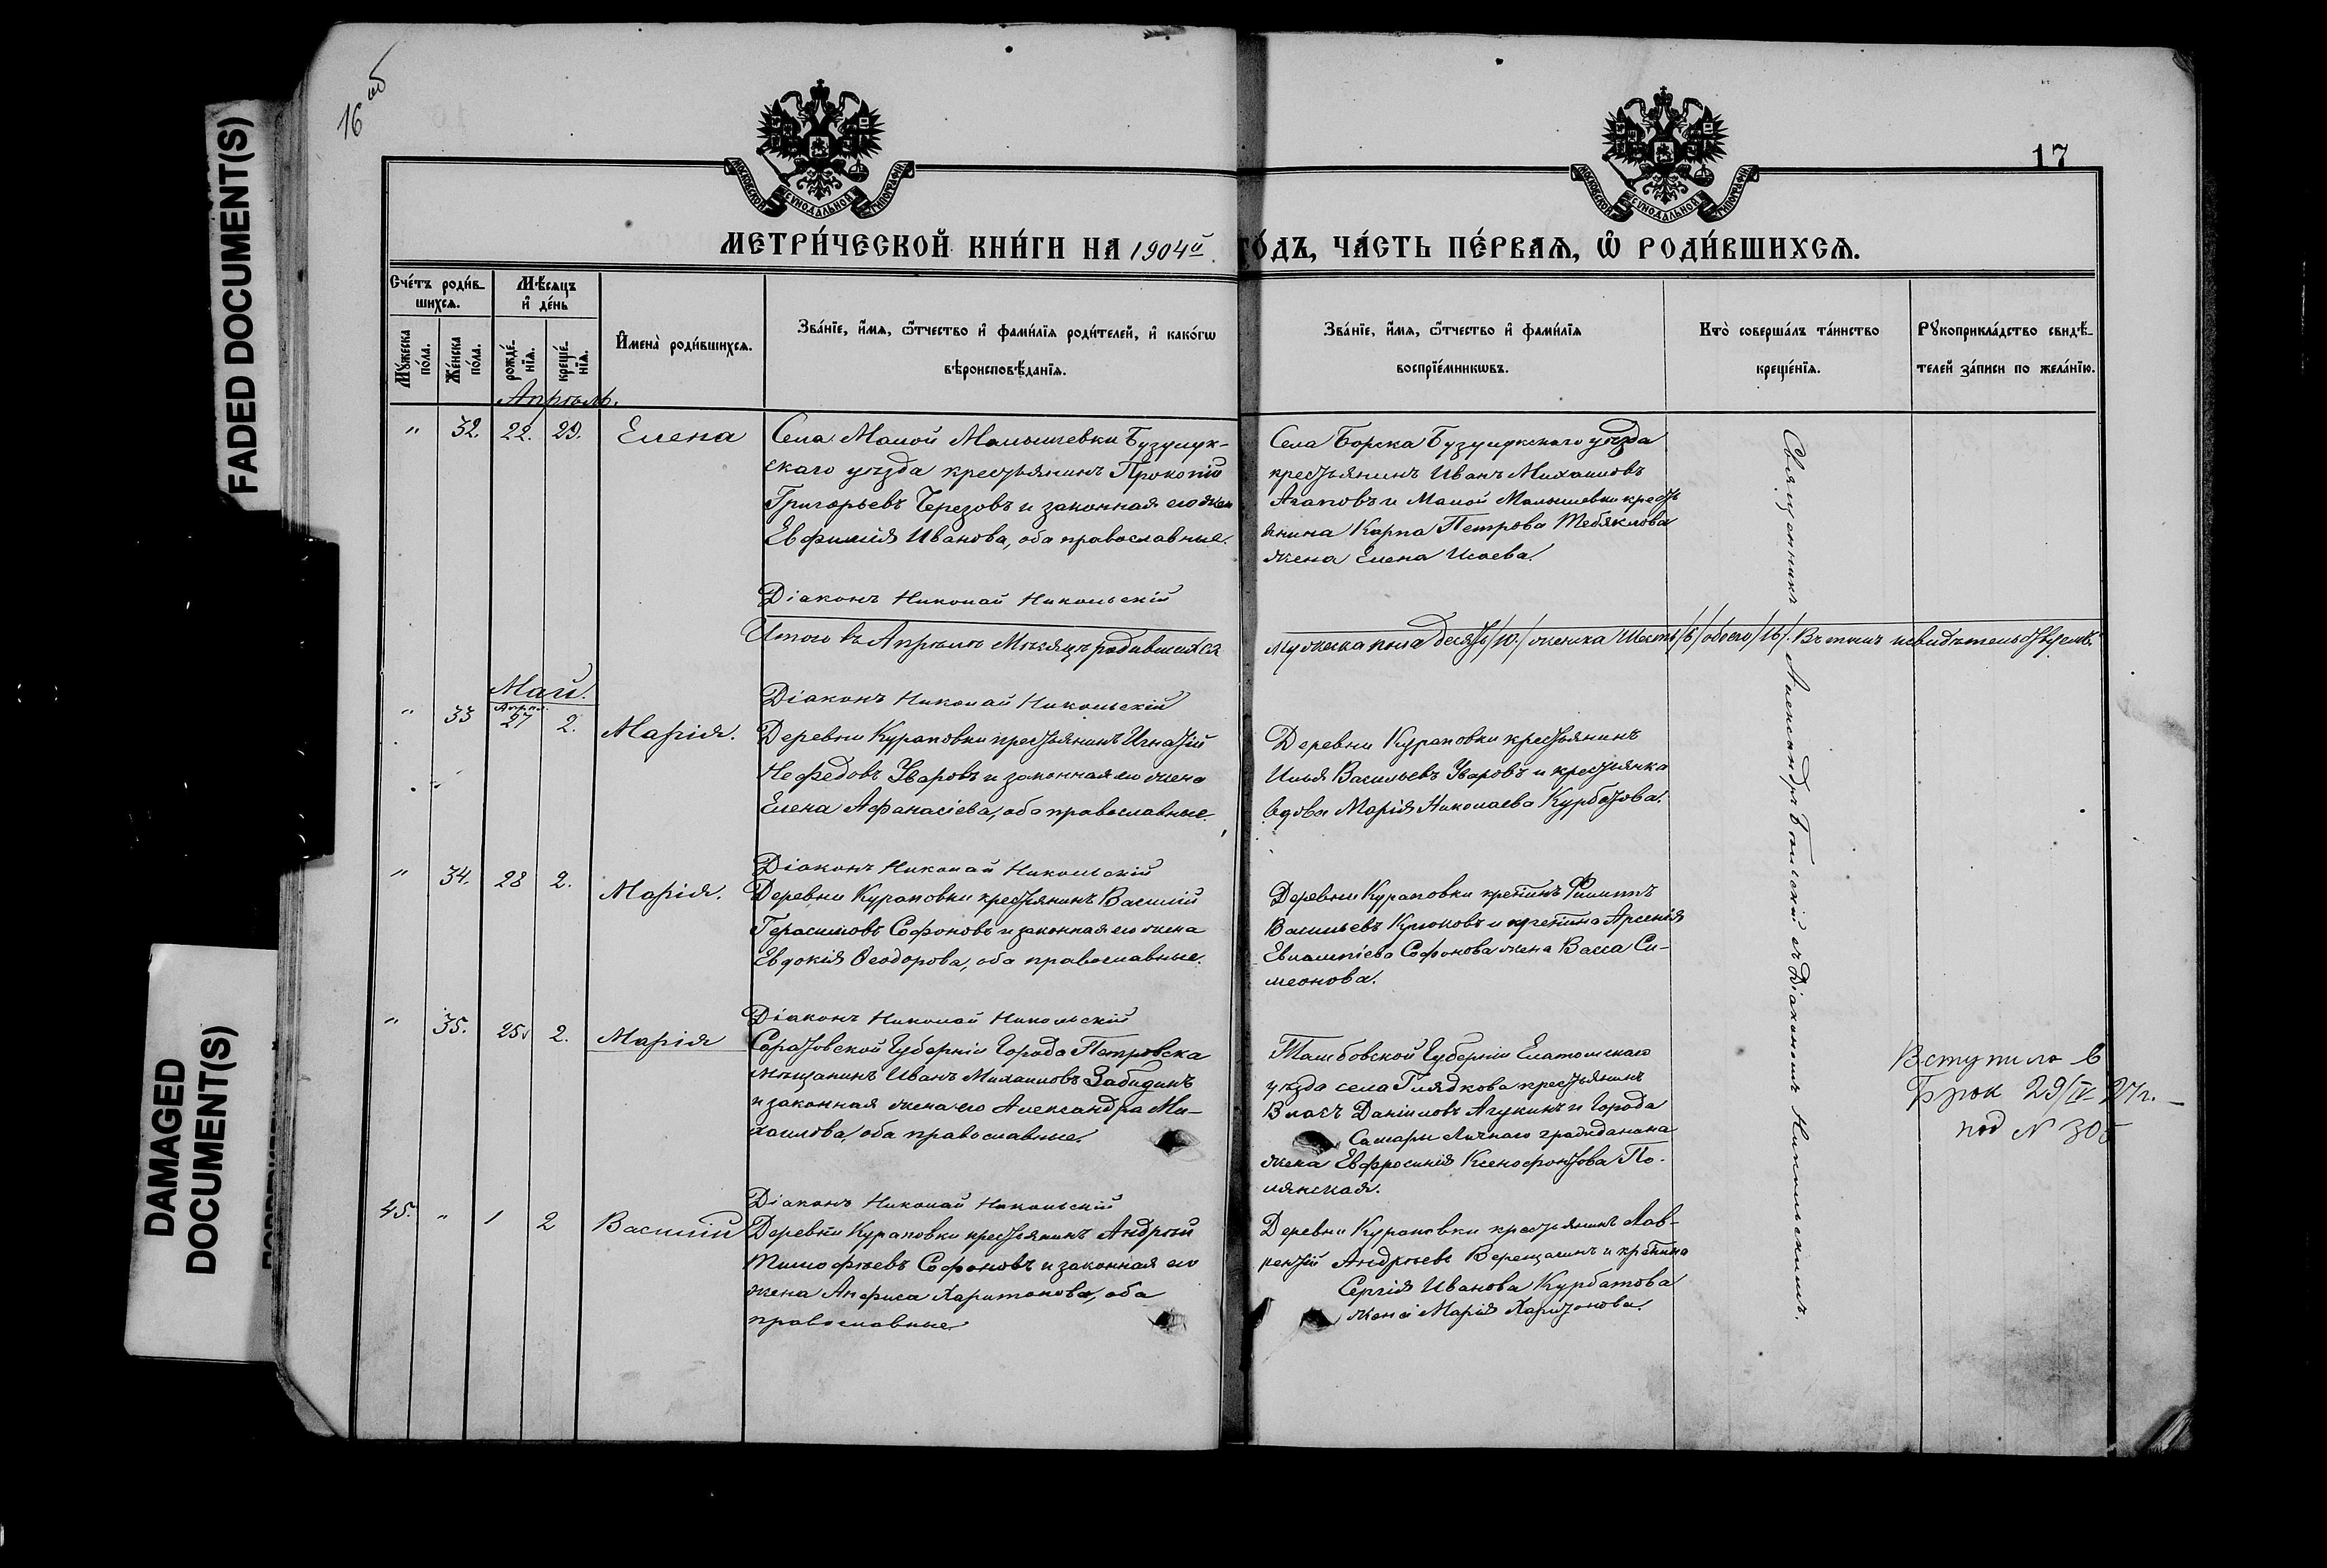 16 об
17
FADED DOCUMENT(S)
DAMAGED
DOCUMENT(S)
МОСКОВСКОЙ СУНОДАЛЬНОЙ ТИПОГРАФІИ
МОСКОВСКОЙ СУНОДАЛЬНОЙ ТИПОГРАФІИ
МЕТРИ́ЧЕСКОЙ КНИ́ГИ НА 1904й ГО́ДЪ, ЧА́СТЬ ПЕ́РВАЯ, Ѡ҆ РОДИ́ВШИХСѦ.
Сче́тъ роди́в-
шихсѧ.
Мѣ́сѧцъ
и҆ де́нь
Мꙋ́жеска
по́ла.
Же́нска
по́ла.
рожде́-
нїѧ.
креще́-
нїѧ.
И҆мена̀ роди́вшихсѧ.
Зва́нїе, и҆́мѧ, ѻ҆́тчество и҆ фами́лїѧ роди́телей, и҆ како́гѡ
вѣроисповѣ́данїѧ.
Зва́нїе, и҆́мѧ, ѻ҆́тчество и҆ фами́лїѧ
воспрїе́мникѡвъ.
Кто̀ соверша́лъ та́инство
креще́нїѧ.
Рꙋкоприкла́дство свидѣ́-
телей за́писи по жела́нїю.
Апрѣль.
" 32. 22. 29. Елена
Села Малой Малышевки Бузулук-
скаго уѣзда крестьянинъ Прокопій
Григорьевъ Черезовъ и законная его жена
Евфимія Иванова, оба православные.
Села Борска Бузулукскаго уѣзда
крестьянинъ Иванъ Михаиловъ
Агаповъ и Малой Малышевки кресть
янина Карпа Петрова Тебякова
жена Елена Исаева.
Діаконъ Николай Никольскій
Итого въ Апрѣлѣ Мѣсяцѣ родившихся мужеска пола десять /10./ женска шесть /6/ обоего /16/. Въ томъ и свидѣтельствуемъ:
Священникъ Александръ с Діакономъ Никольскимъ.
Май.
Діаконъ Николай Никольскій
" 33 Апрѣл. 27 2. Марія.
Деревни Курановки крестьянинъ Игнатій
Нефедовъ Уваровъ и законная его жена
Елена Афанасіева, оба православные.
Деревни Курановки крестьянинъ
Илья Васильевъ Уваровъ и крестьянка
вдова Марія Николаева Курбатова.
Діаконъ Николай Никольскій
" 34. 28 2. Марія.
Деревни Курановки крестьянинъ Василій
Герасимовъ Софоновъ и законная его жена
Евдокія Ѳеодорова, оба православные.
Деревни Курановки крепинъ Филиппъ
Васильевъ Крюковъ и крепина Арсенія
Евлампіева Софонова жена Васса Си-
меонова.
Діаконъ Николай Никольскій
" 35. 25 2. Марія
Саратовской Губерніи Города Петровска
мѣщанинъ Иванъ Михаиловъ Забидинъ
и законная жена его Александра Ми-
хаилова, оба православные.
Тамбовской Губерніи Елатомскаго
уѣзда села Глядкова крестьянинъ
Власъ Даніиловъ Агукинъ и Города
Самары Личнаго гражданина
жена Евфросинія Ксенофонтова По-
лянская.
Вступила в
брак 29/IV 27г.
под N 305
Діаконъ Николай Никольскій
45. " 1 2 Василій
Деревни Курановки крестьянинъ Андрей
Тимофѣевъ Софоновъ и законная его
жена Анфиса Харитонова, оба
православные.
Деревни Курановки крестьянинъ Лав-
рентій Андреевъ Верещагинъ и крепина
Сергія Иванова Курбатова
жена Марія Харитонова.